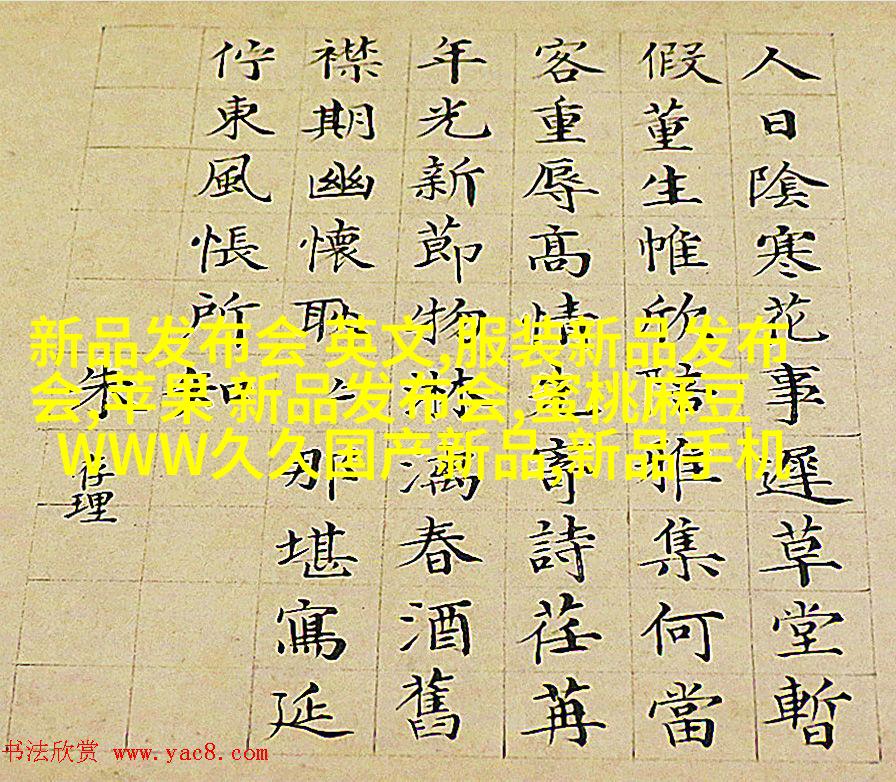 人日陰寒花事遲草堂暫
假董生帷欣雅集何當
客重辱高情寄詩荏苒
年光新節物淋漓春酒舊
襟期幽懷耿那堪寫延
佇東風悵所知
朱存理
新品发布会 英文,服装新品发布
会,苹果 新品发布会,蜜桃麻豆
WWW久久国产新品,新品手机
书法欣赏 www.yac8.com